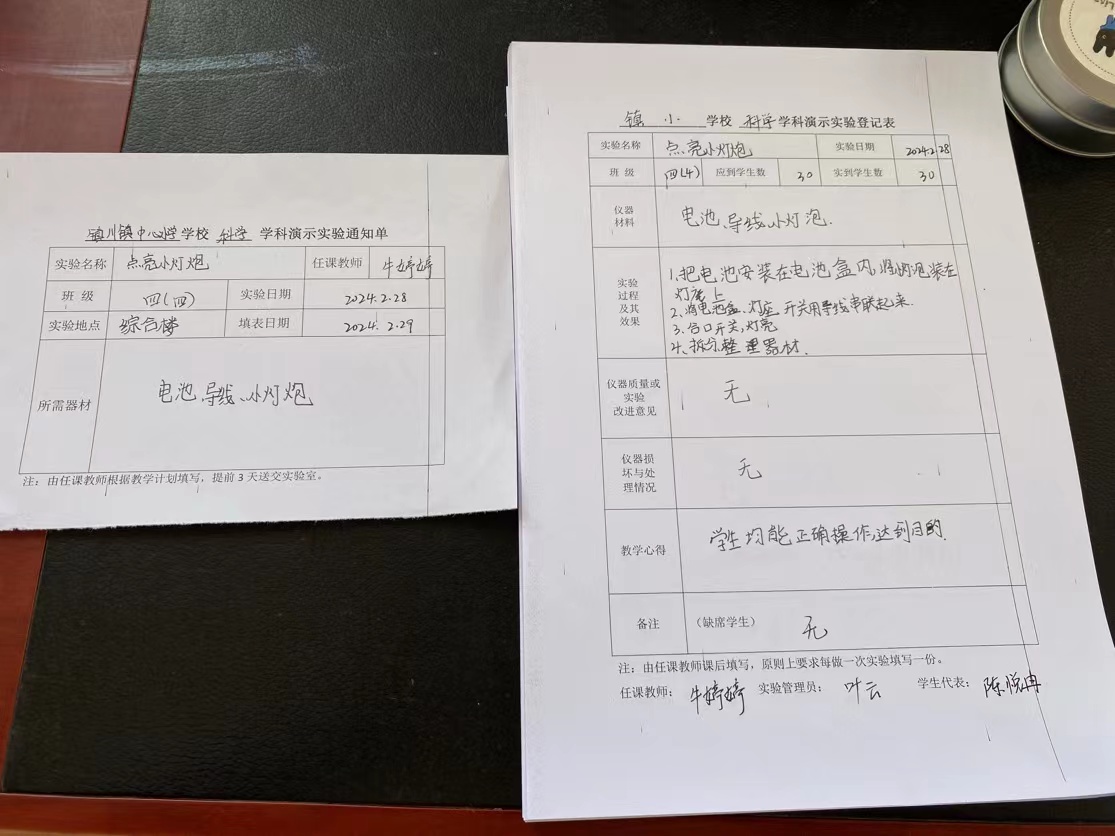 镇川镇中心小学学校 科学 学科演示实验通知单
实验名称 点亮小灯炮 任课教师 牛婷婷
班 级 四(四) 实验日期 2024.2.28
实验地点 综合楼 填表日期 2024.2.29
所需器材 电池、导线、小灯炮
注：由任课教师根据教学计划填写，提前 3 天送交实验室。
镇小 学校 科学 学科演示实验登记表
实验名称 点亮小灯炮 实验日期 2024.2.28
班 级 四(4) 应到学生数 30 实到学生数 30
仪器
材料
电池、导线、小灯泡.
实验
过程
及其
效果
1.把电池安装在电池盒内,将灯泡装在
灯座上
2.将电池盒、灯座、开关用导线串联起来.
3.合口开关,灯亮
4.拆分整理器材.
仪器质量或
实验
改进意见
无
仪器损
坏与处
理情况
无
教学心得 学生均能正确操作,达到目的.
备注 （缺席学生） 无
注：由任课教师课后填写，原则上要求每做一次实验填写一份。
任课教师： 牛婷婷 实验管理员： 叶云 学生代表： 陈悦冉